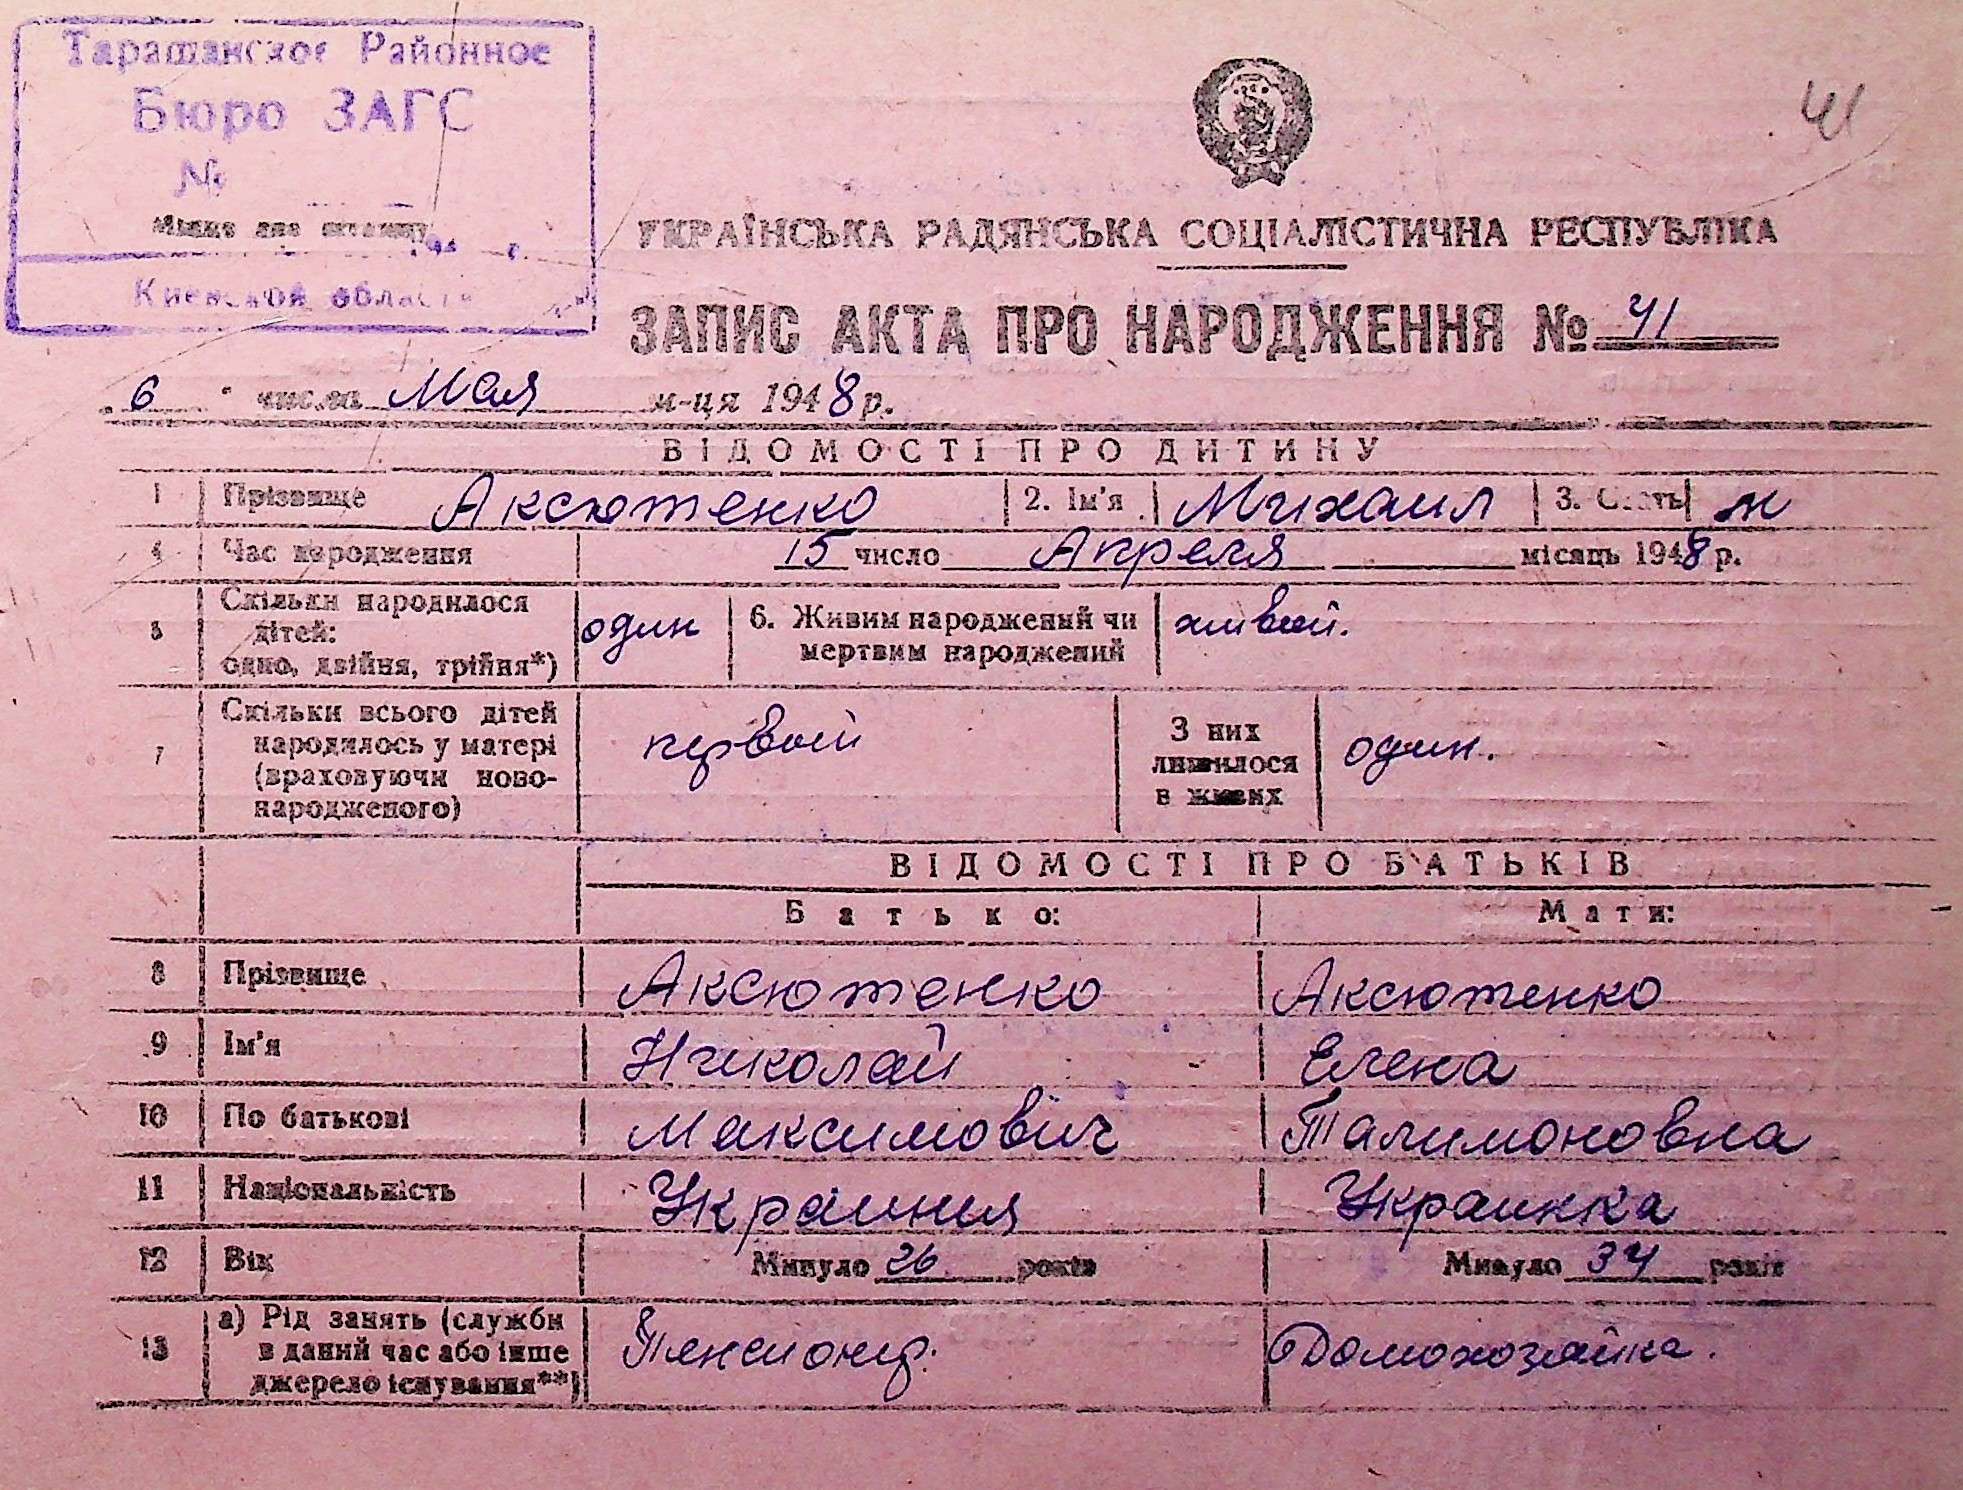 Таращанское Районное
Бюро ЗАГС
№
Місце для штампу
Киевской области
41
УКРАЇНСЬКА РАДЯНСЬКА СОЦІАЛІСТИЧНА РЕСПУБЛІКА
ЗАПИС АКТА ПРО НАРОДЖЕННЯ № 41
"6" числа Мая м-ця 1948 р.
ВІДОМОСТІ ПРО ДИТИНУ
1 Прізвище Аксютенко 2. Ім'я Михаил 3. Стать м
4 Час народження 15 число Апреля місяць 1948 р.
5 Скільки народилося дітей: одно, двійня, трійня*) один 6. Живим народжений чи мертвим народжений живой.
7 Скільки всього дітей народилось у матері (враховуючи новонародженого) первый З них лишилося в живих один.
ВІДОМОСТІ ПРО БАТЬКІВ
Батько: Мати:
8 Прізвище Аксютенко Аксютенко
9 Ім'я Николай Елена
10 По батькові Максимович Талимоновна
11 Національність Украинця Украинка
12 Вік Минуло 26 років Минуло 34 років
13 а) Рід занять (служби в даний час або інше джерело існування**) Пенсионер. Домохозяйка.